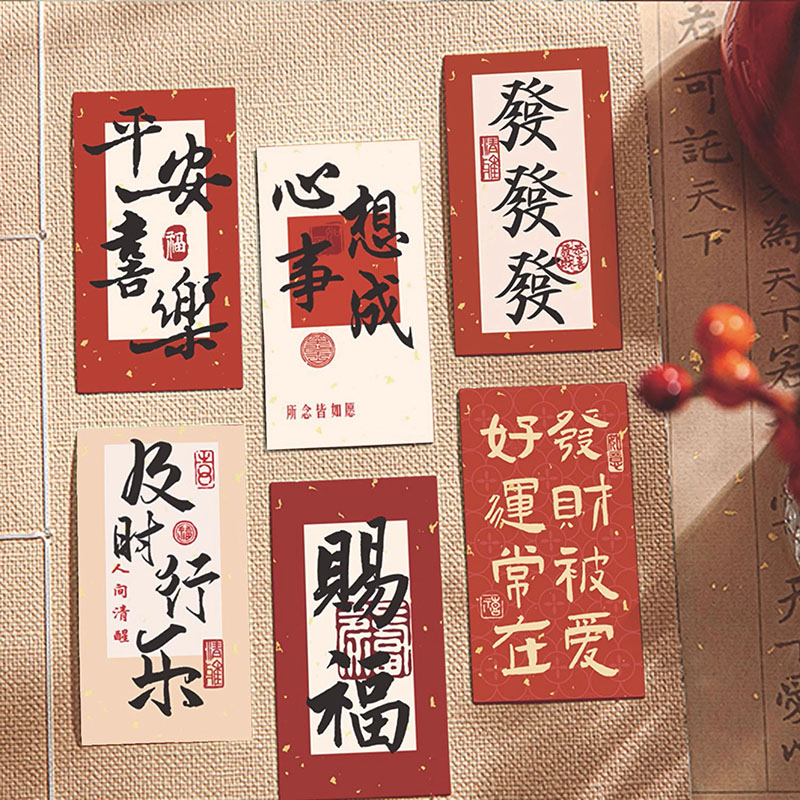 平安
喜樂
福
心想
事成
所念皆如愿
發發發
及时行乐
人间清醒
吉
賜福
發財被爱
好運常在
若可託天下
為天下